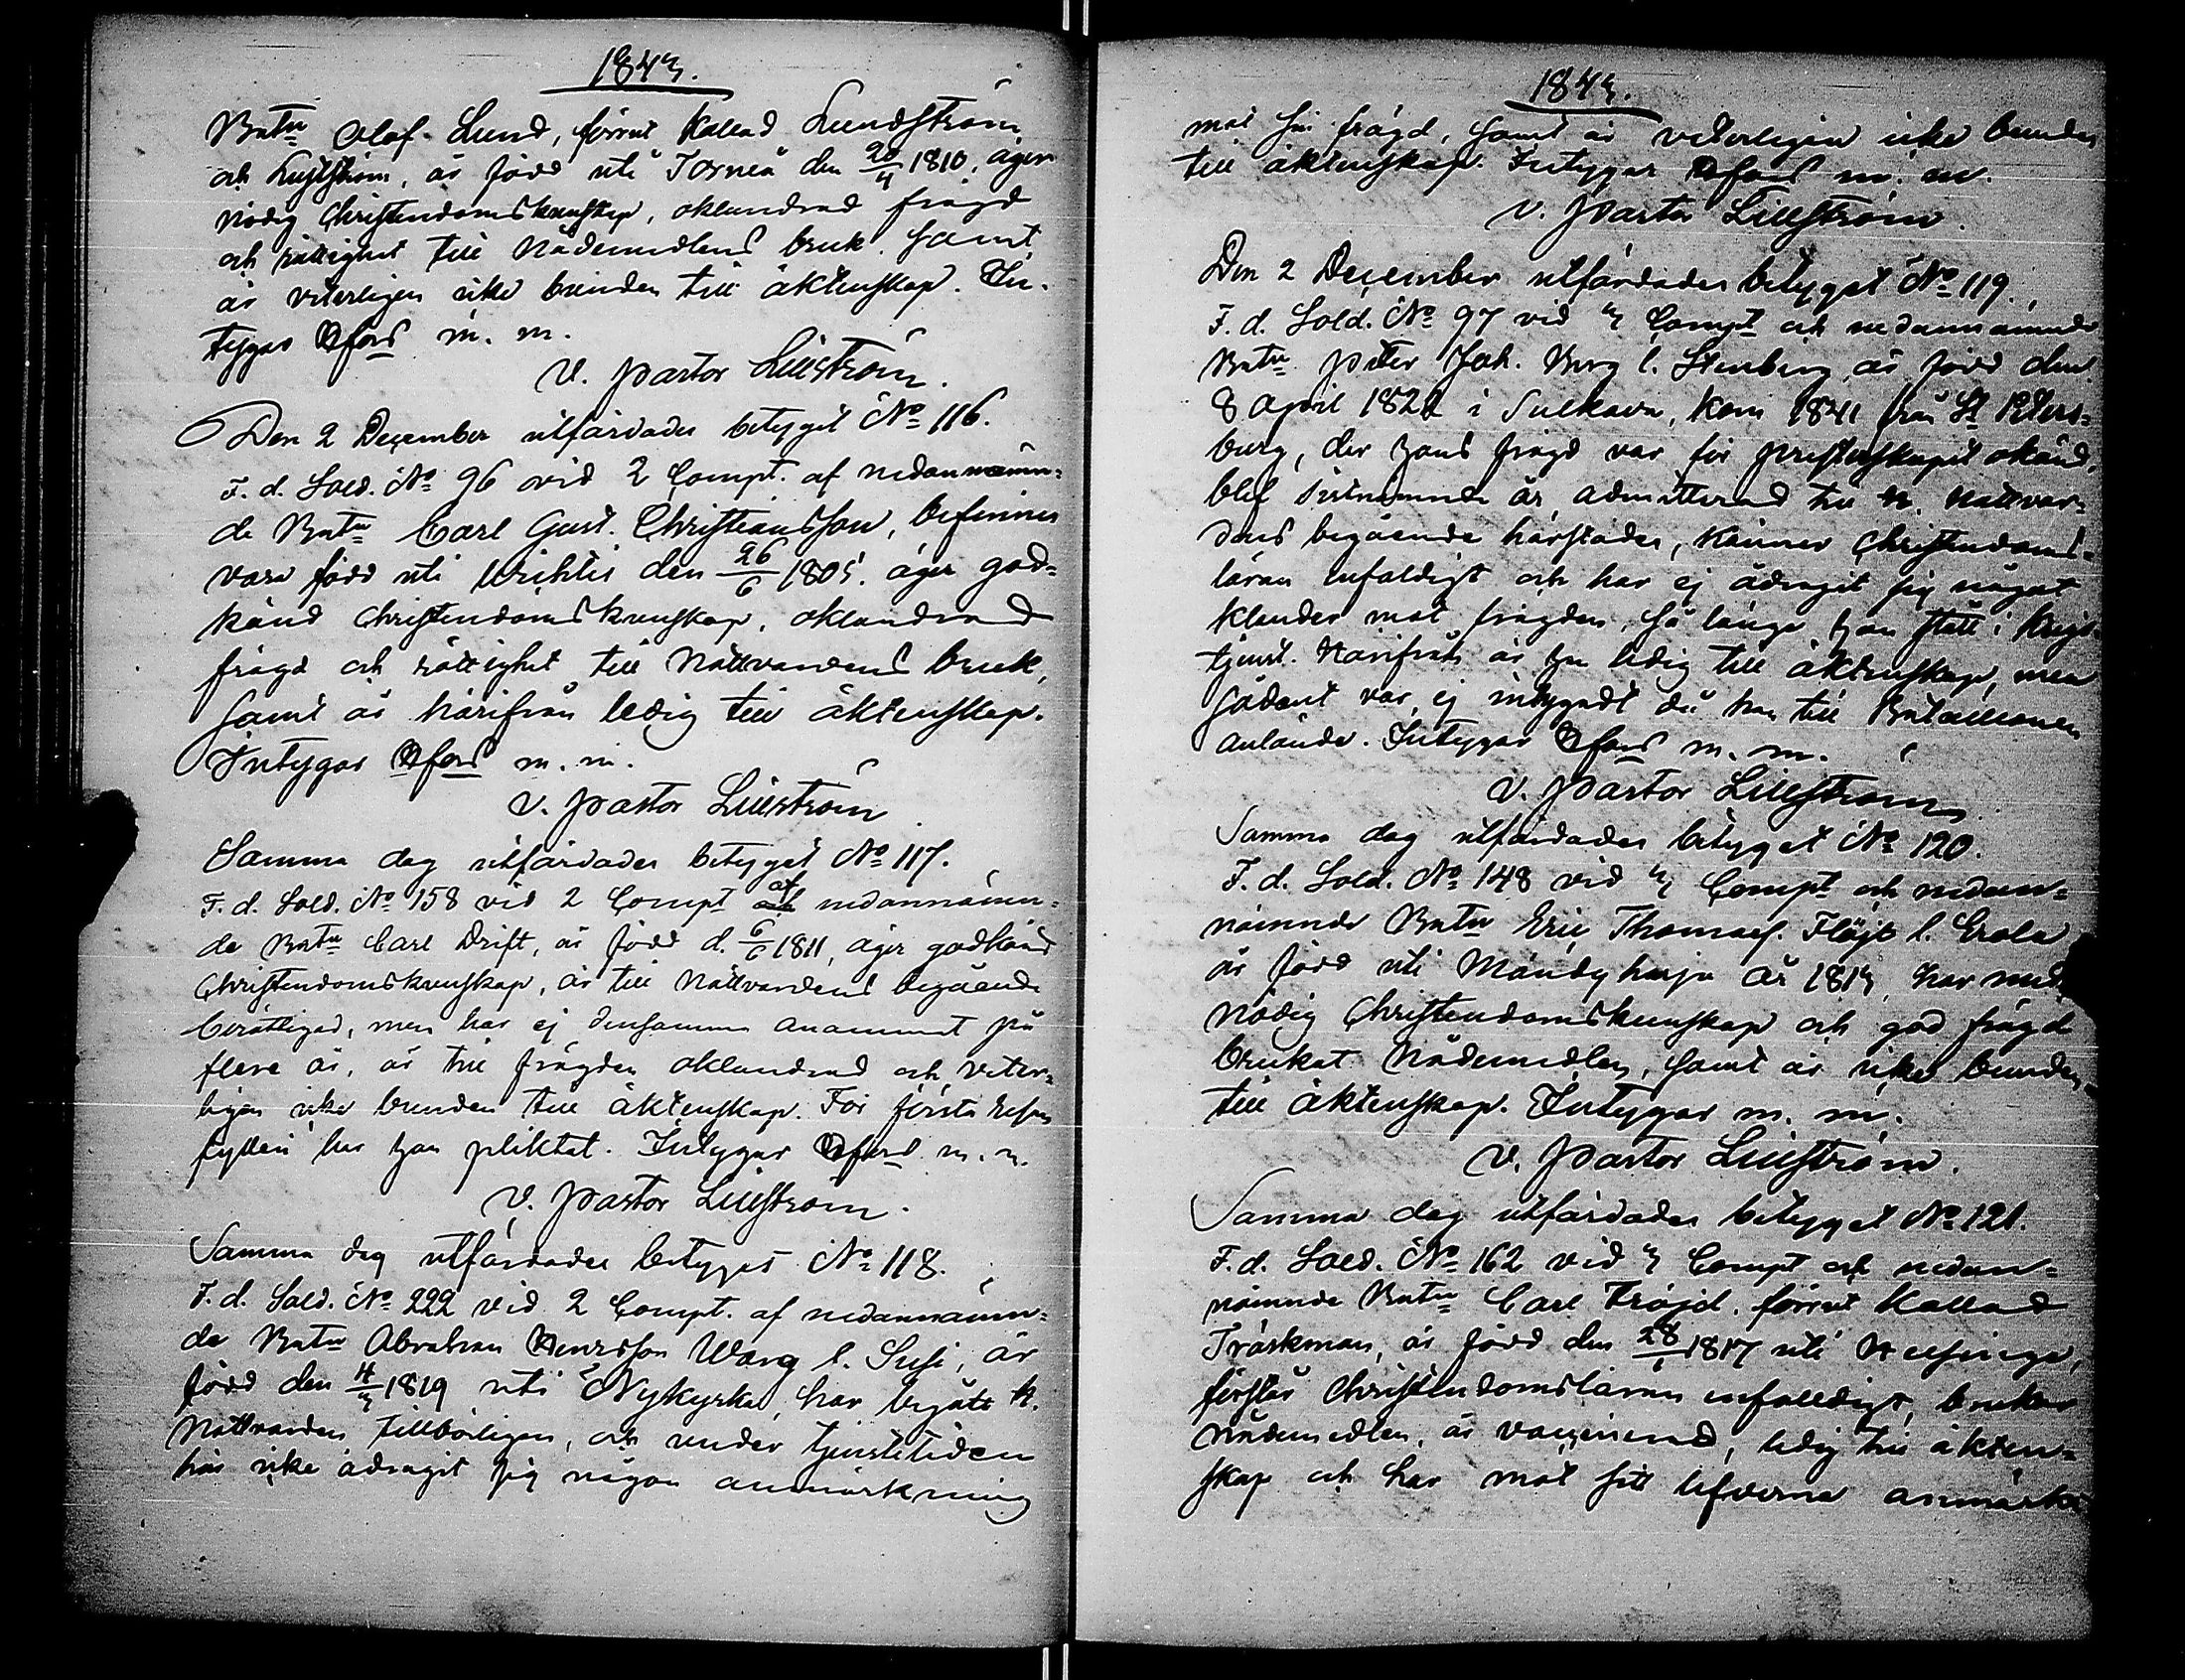 1843.
Batn Olof Lund, förrut kallad Lundström
och Lustström, är född uti Torneå den 20/4 1810, äger
nödig Christendomskunskap, oklandrad frägd
och rättighet till Nådemedlens bruk, samt
är veterligen icke bunden till äktenskap. In-
tygar H:fors m. m.
V. Pastor Lillström.
Den 2 December utfärdades betyget No 116.
F. d. Sold. No 96 vid 2 Compt. af nedannämn-
de Batn Carl Gust. Christiansson, befinnes
vara född uti Wichtis den 26/6 1805. äger god-
känd Christendomskunskap, oklandrad
frägd och rättighet till Nattvardens bruk,
samt är härifrån ledig till äktenskap.
Intygar H:fors m. m.
V. Pastor Lillström
Samma dag utfärdades betyget No 117.
F. d. Sold. No 158 vid 2 Compt af nedannämn-
de Batn Carl Drift, är född d. 6/6 1811, äger godkänd
Christendomskunskap, är till Nattvardens begående
berättigad, men har ej densamma anammat på
flere år, är till frägden oklandrad och veter-
ligen icke bunden till äktenskap. För första resan
fylleri har han pliktat. Intygar H:fors m. m.
V. Pastor Lillström.
Samma dag utfärdades betyget No 118.
F. d. Sold. No 222 vid 2 Compt. af nedannämn-
de Batn Abraham Henrdsson Warg l. Susi, är
född den 4/3 1819 uti Nykyrka, har begått H.
Nattvarden tillbörligen, och under tjenstetiden
här icke ådragit sig någon anmärkning
1843.
mot sin frägd, samt är veterligen icke bunden
till äktenskap. Intygar H:fors m. m.
V. Pastor Lillström.
Den 2 December utfärdades betyget No 119.
F. d. Sold. No 97 vid 3 Compt och nedannämnde
Batn Peter Joh. Berg l. Stenberg, är född den
8 April 1822 i Sulkava, kom 1841 från St Peters-
burg, der hans frägd var för presterskapet okänd,
blef sistnämnde år admitterad till H. Nattvar-
dens begående härstädes, känner Christendoms-
läran enfaldigt och har ej ådragit sig något
klander mot frägden, så länge han stått i krigs-
tjenst. Härifrån är han ledig till äktenskap, men
sådant var ej intygadt då han till Bataillonen
anlände. Intygar H:fors m. m.
V. Pastor Lillström
Samma dag utfärdades betyget No 120.
F. d. Sold. No 148 vid 3 Compt och nedan-
nämnde Batn Eric Thomasf. Flöjt l. Erola
är född uti Mändyharju år 1813, har med
nödig Christendomskunskap och god frägd
brukat Nådemedlen, samt är icke bunden
till äktenskap. Intygar m. m.
V. Pastor Lillström.
Samma dag utfärdades betyget No 121.
F. d. Sold. No 162 vid 3 Compt och nedan-
nämnde Batn Carl Fröjd, förrut kallad
Träskman, är född den 28/1 1817 uti Helsinge,
förstår Christendomsläran enfalldigt, brukar
Nådemedlen, är vaccinerad, ledig till äkten-
skap och har mot sitt lefverne anmärk-